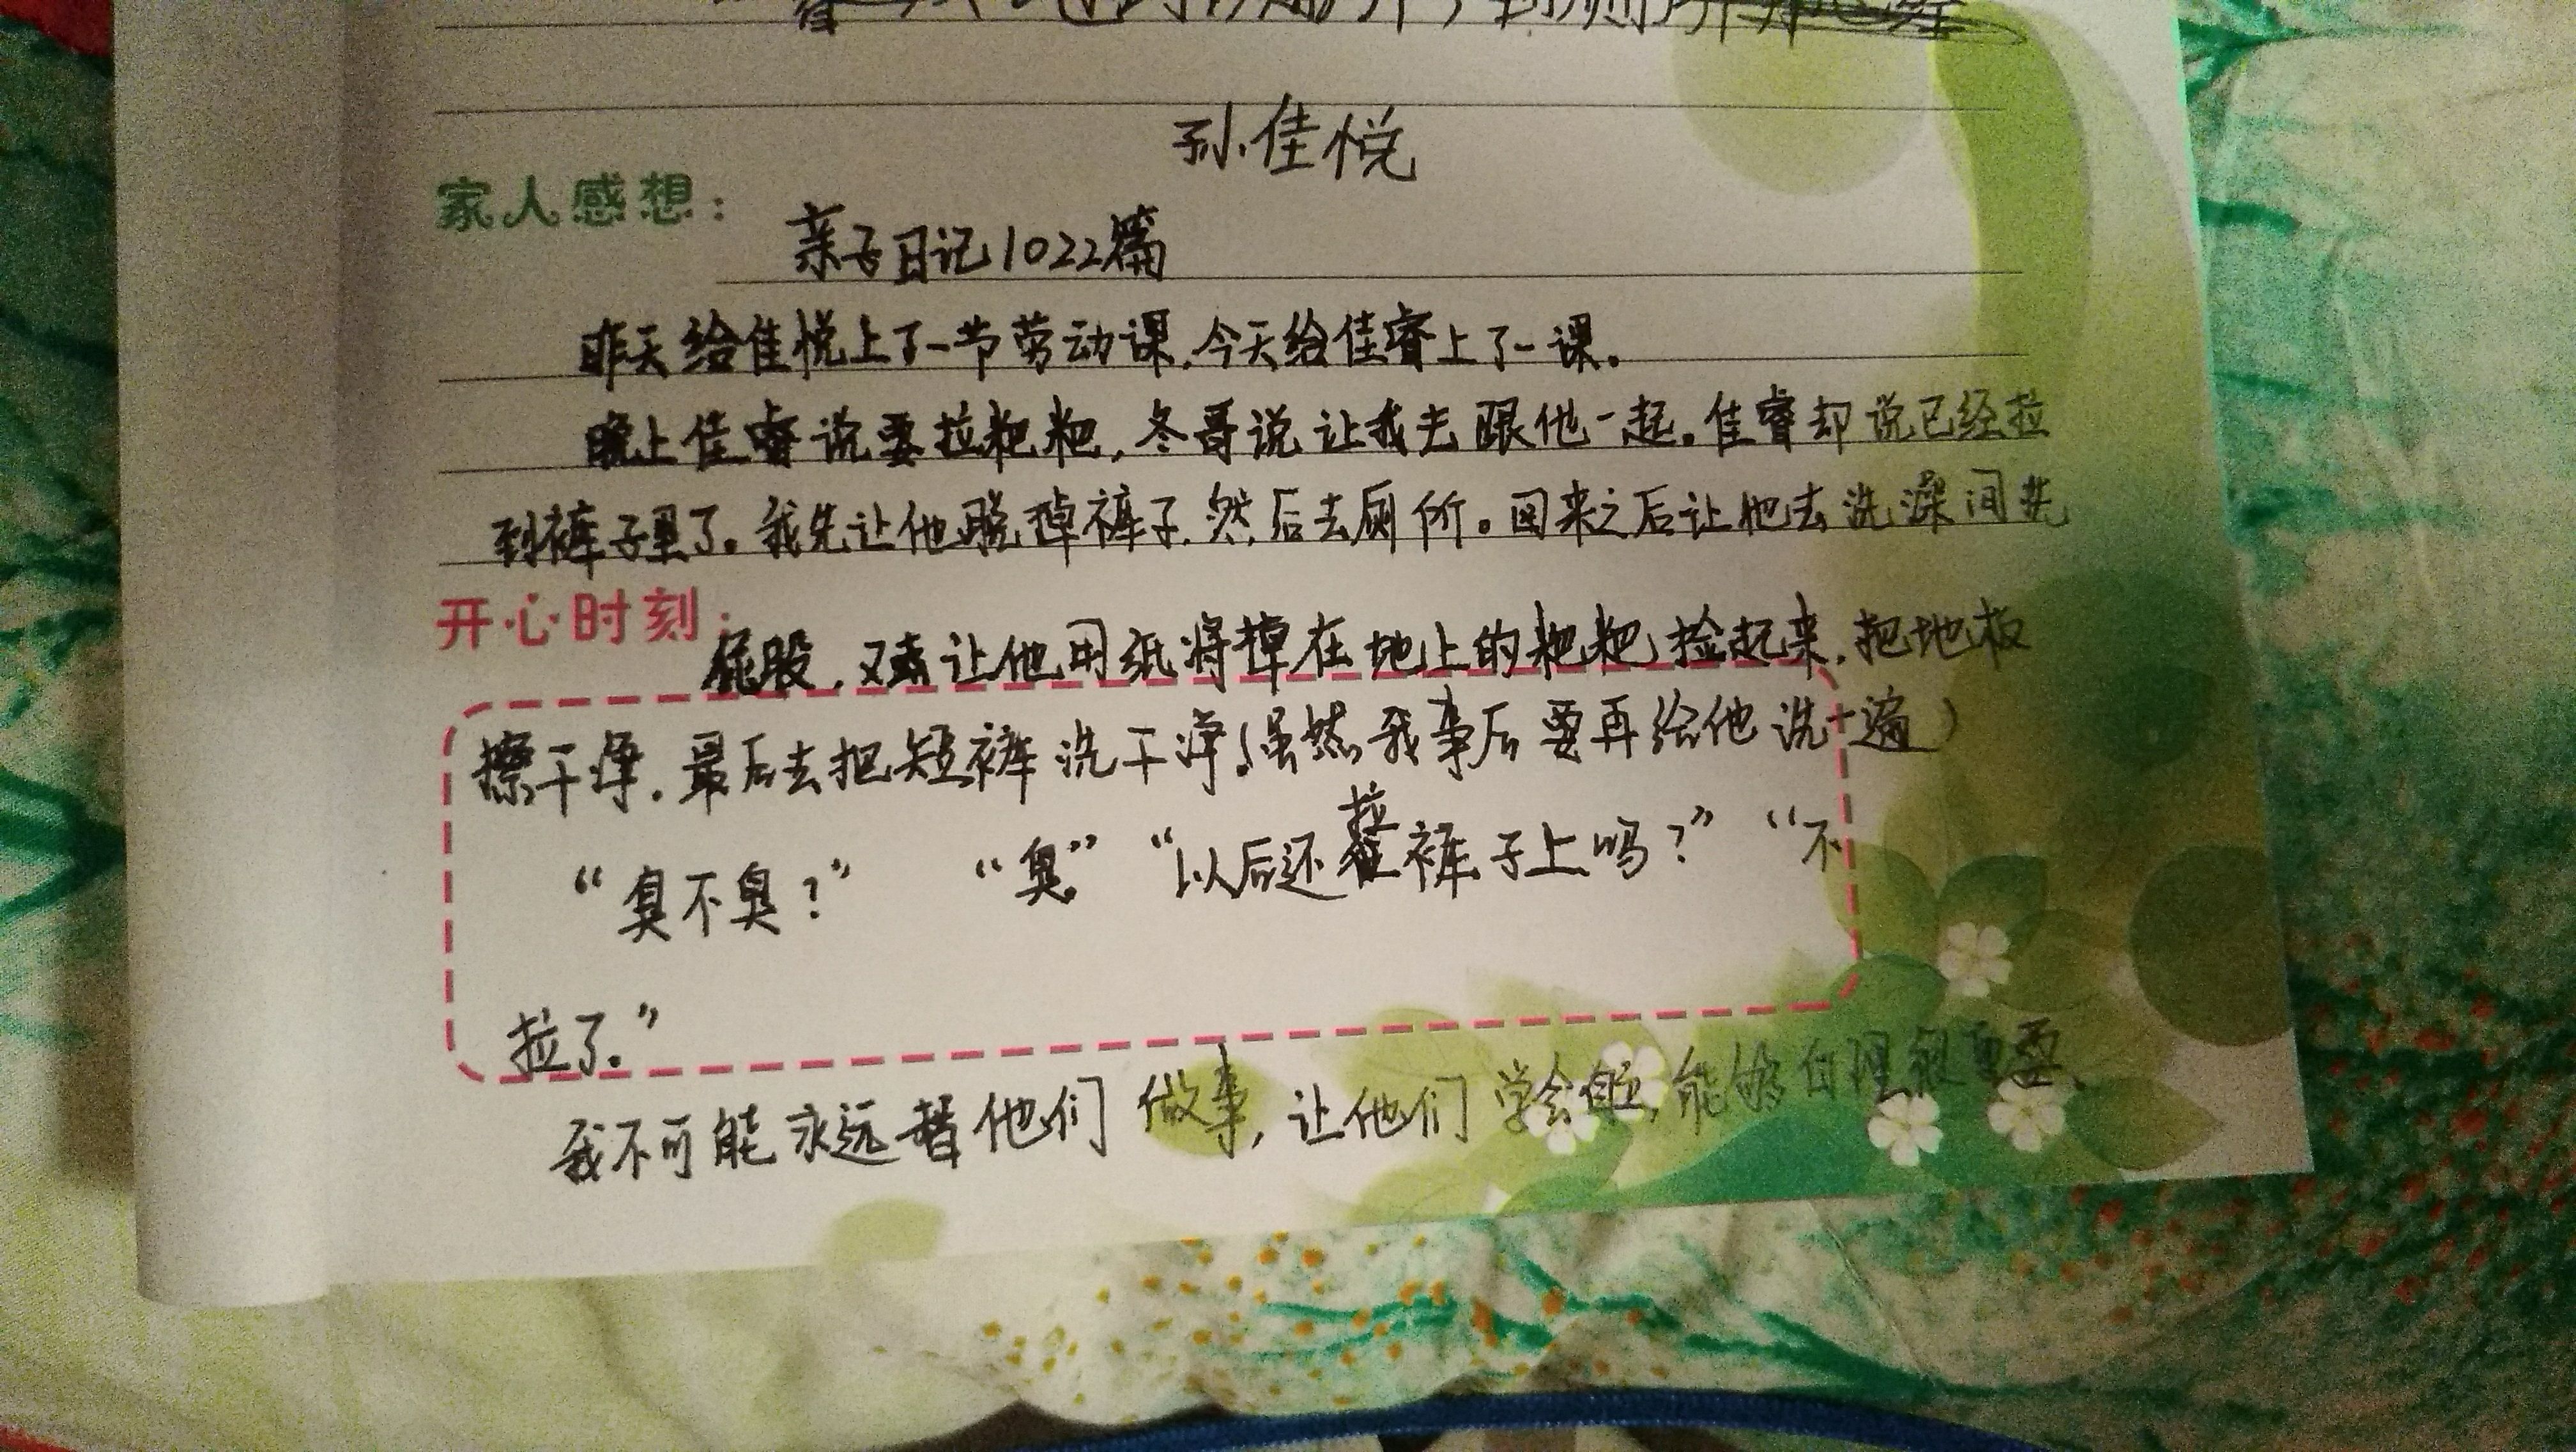 孙佳悦
家人感想：
亲子日记1022篇
昨天给佳悦上了一节劳动课,今天给佳睿上了一课。
晚上佳睿说要拉粑粑,冬哥说让我去跟他一起。佳睿却说已经拉
到裤子里了。我先让他脱掉裤子,然后去厕所。回来之后让他去洗澡间洗
开心时刻：
屁股,又让他用纸将掉在地上的粑粑捡起来,把地板
擦干净.最后去把短裤洗干净!虽然我事后要再给他洗一遍）
“臭不臭？” “臭” “以后还拉裤子上吗？” “不
拉了.”
我不可能永远替他们做事,让他们学会能够自理很重要、